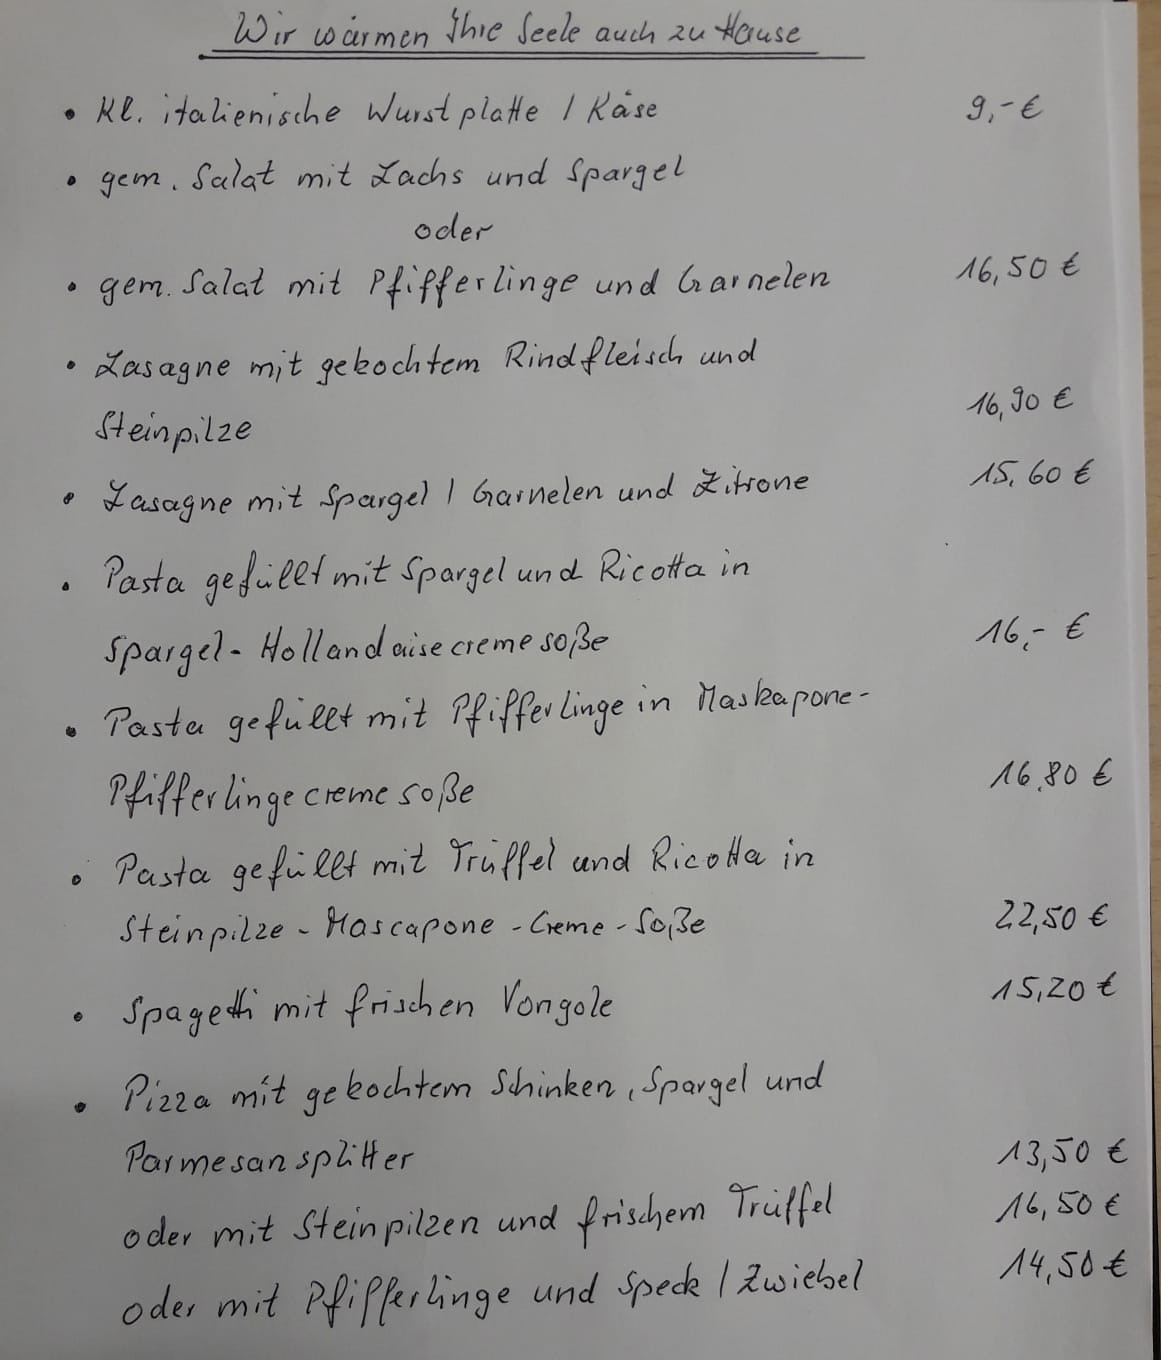 Wir wärmen Ihre Seele auch zu Hause
• Kl. italienische Wurstplatte / Käse 9,-€
• gem. Salat mit Lachs und Spargel
oder
• gem. Salat mit Pfifferlinge und Garnelen 16,50 €
• Lasagne mit gekochtem Rindfleisch und
Steinpilze 16,90 €
• Lasagne mit Spargel / Garnelen und Zitrone 15,60 €
• Pasta gefüllt mit Spargel und Ricotta in
Spargel-Hollandaisecremesoße 16,- €
• Pasta gefüllt mit Pfifferlinge in Maskapone-
Pfifferlingecremesoße 16,80 €
• Pasta gefüllt mit Trüffel und Ricotta in
Steinpilze-Mascapone-Creme-Soße 22,50 €
• Spagetti mit frischen Vongole 15,20 €
• Pizza mit gekochtem Schinken, Spargel und
Parmesansplitter 13,50 €
oder mit Steinpilzen und frischem Trüffel 16,50 €
oder mit Pfifferlinge und Speck / Zwiebel 14,50 €